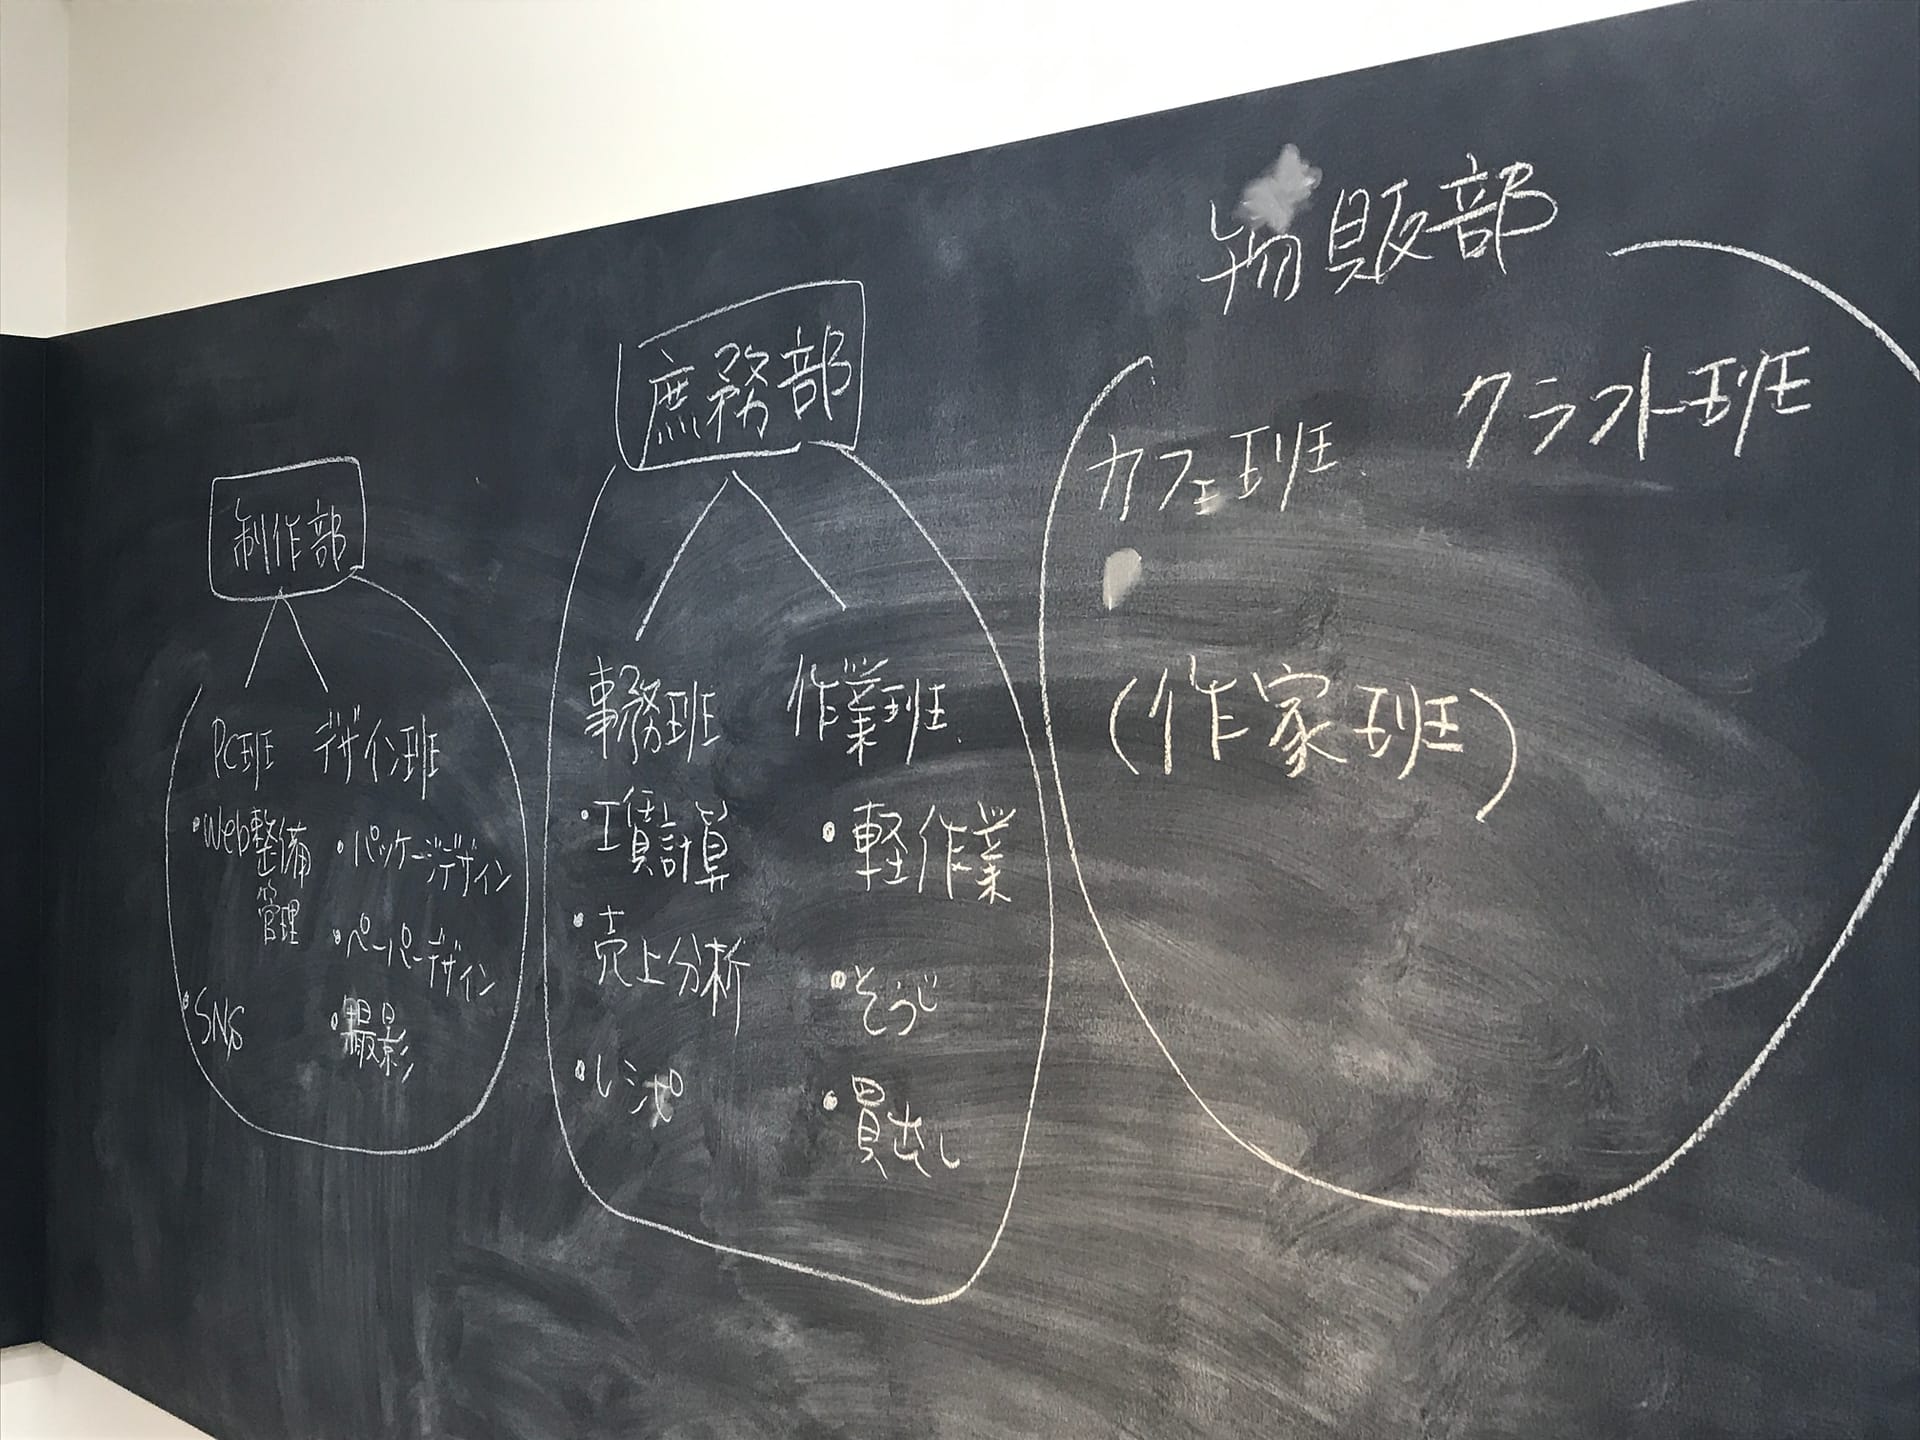 制作部
PC班 デザイン班
・Web整備
管理
・SNS
・パッケージデザイン
・ペーパーデザイン
・撮影
庶務部
事務班 作業班
・工賃計算
・売上分析
・レシピ
・軽作業
・そうじ
・買出し
物販部
カフェ班 クラフト班
(作家班)